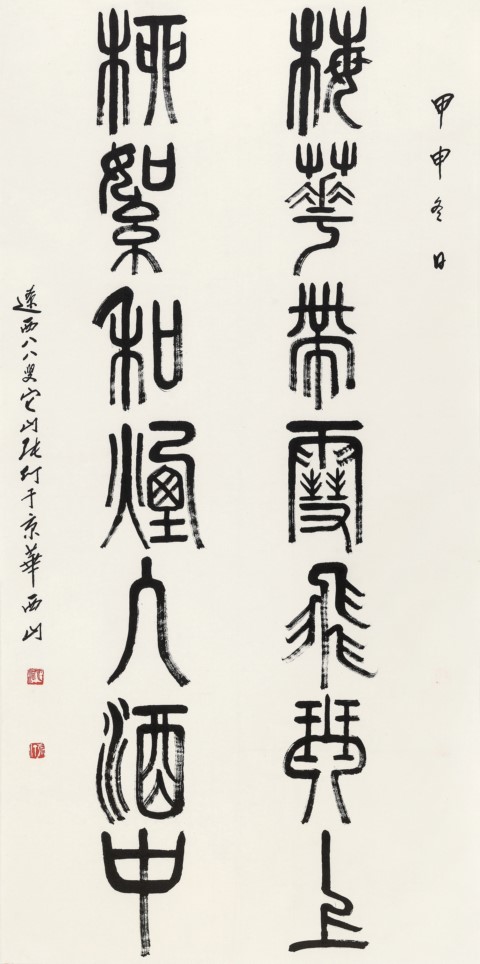 甲申冬日
梅華帶雪飛琴上
柳絮和煙入酒中
遼西八八叟它山張仃于京華西山